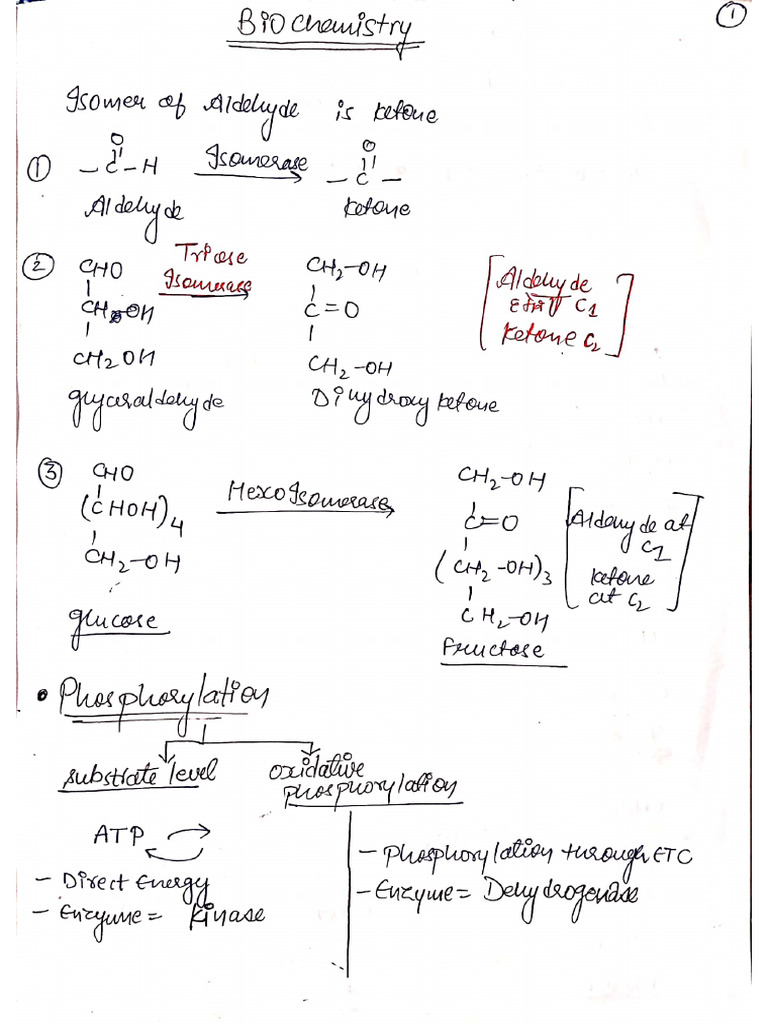 ①
BioChemistry
Isomer of Aldehyde is ketone
① O
– C – H Isomerase → O
– C –
Aldehyde ketone
② CHO Triose Isomerase → CH2–OH
CHOH C=O
CH2OH CH2–OH
[Aldehyde
C1
ketone C2]
glyceraldehyde Dihydroxy ketone
③ CHO Hexoisomerase → CH2–OH
(CHOH)4 C=O
CH2–OH (CH2–OH)3
CH2–OH
[Aldehyde at
C1
ketone
at C2]
glucose Fructose
• Phosphorylation
substrate level oxidative
phosphorylation
ATP
– Direct Energy
– Enzyme = kinase
– Phosphorylation through ETC
– Enzyme = Dehydrogenase